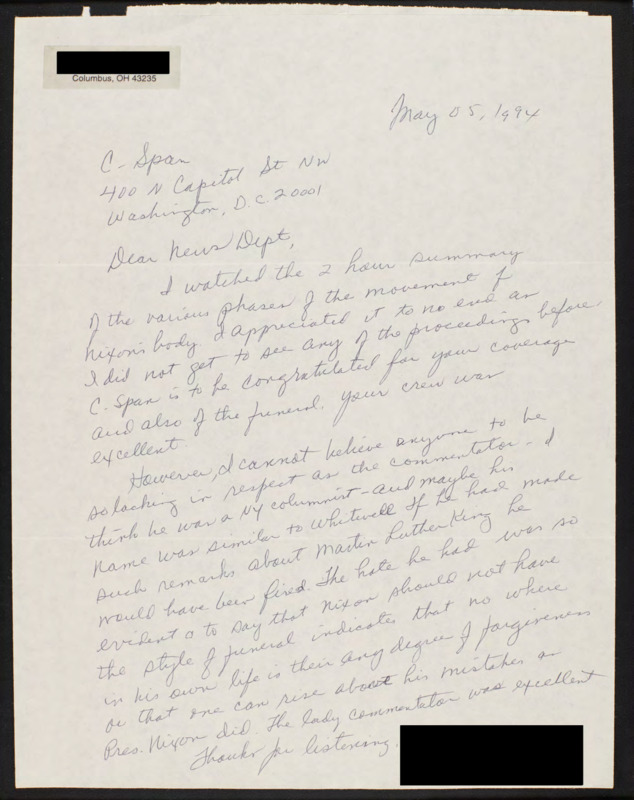 Columbus, OH 43235
May 05, 1994
C-Span
400 N Capitol St NW
Washington, D.C. 20001
Dear News Dept,
I watched the 2 hour summary
of the various phases of the movement of
Nixon's body. I appreciated it to no end as
I did not get to see any of the proceedings before.
C. Span is to be congratulated for your coverage
and also of the funeral. Your crew was
excellent.
However, I cannot believe anyone to be
so lacking in respect as the commentator - I
think he was a NY columnist - and maybe his
name was similar to Whitwell. If he had made
such remarks about Martin Luther King he
would have been fired. The hate he had was so
evident to say that Nixon should not have
the style of funeral indicates that no where
in his own life is their any degree of forgiveness
or that one can rise above his mistakes as
Pres. Nixon did. The lady commentator was excellent
Thanks for listening.